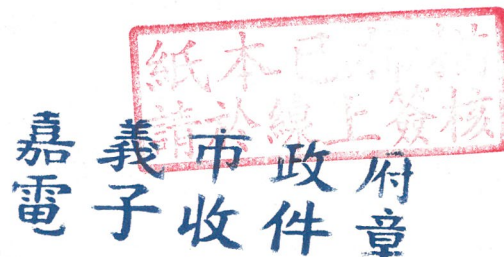 紙本已
請於線上簽核
嘉義市政府
電子收件章